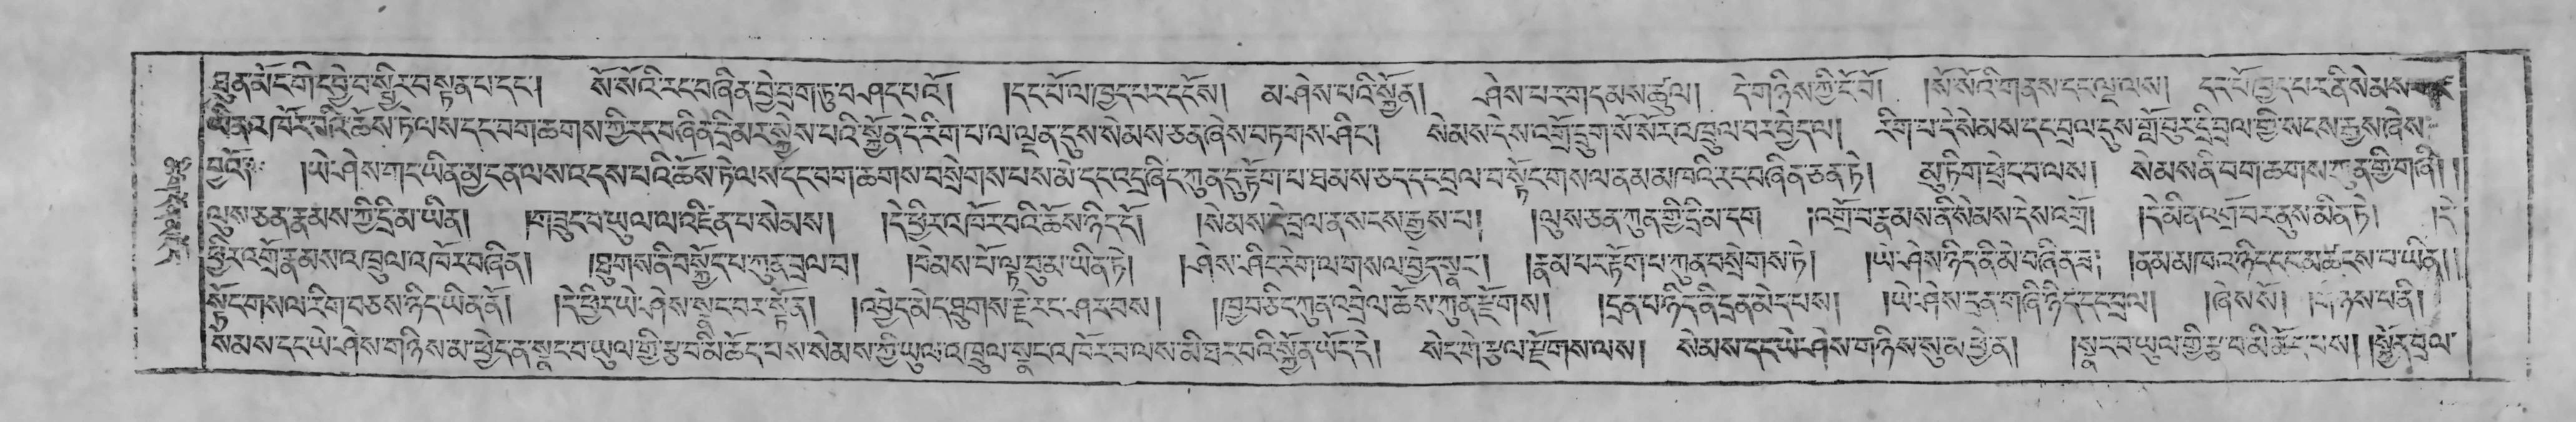 ཐུན་མོང་གི་དབྱེ་བ་སྤྱིར་བསྟན་པ་དང་། སོ་སོའི་རང་བཞིན་བྱེ་བྲག་ཏུ་བཤད་པའོ། །དང་པོ་ལ་ཁྱད་པར་དངོས། མ་ཤེས་པའི་སྐྱོན། ཤེས་པར་གདམས་ཚུལ། དེ་གཉིས་ཀྱི་ངོ་བོ། །སོ་སོའི་གནས་དང་ལྔ་ལས། དང་པོ་ཁྱད་པར་ནི་སེམས་
ཡིན་ལ་ཁོར་བའི་ཆོས་ཏེ་ལས་དང་བག་ཆགས་ཀྱི་རང་བཞིན་དྲི་མར་སྐྱེས་པའི་སྐྱོན་དེ་རིག་པ་ལ་ལྡན་དུས་སེམས་ཅན་ཞེས་བཏགས་ཤིང་། སེམས་དེས་འགྲོ་དྲུག་སོ་སོར་འཁྲུལ་བར་བྱེད་ལ། རིག་པ་དེ་སེམས་དང་བྲལ་དུས་གློ་བུར་དྲི་བྲལ་གྱི་སངས་རྒྱས་ཞེས་
བྱའོ། །ཡེ་ཤེས་གང་ཡིན་མྱ་ངན་ལས་འདས་པའི་ཆོས་ཏེ་ལས་དང་བག་ཆགས་བསྲེགས་པས་མེ་དང་འདྲ་ཞིང་ཀུན་ཏུ་རྟོག་པ་ཐམས་ཅད་དང་བྲལ་བ་སྟོང་གསལ་ནམ་མཁའི་རང་བཞིན་ཅན་ཏེ། མུ་ཏིག་ཕྲེང་བ་ལས། སེམས་ནི་བག་ཆགས་ཀུན་གྱི་གཞི། །
ལུས་ཅན་རྣམས་ཀྱི་དྲི་མ་ཡིན། །གཟུང་བ་ཡུལ་ལ་འཛིན་པ་སེམས། །དེ་ཕྱིར་འཁོར་བའི་ཆོས་ཉིད་དོ། །སེམས་དེ་བྲལ་ན་སངས་རྒྱས་པ། །ལུས་ཅན་ཀུན་གྱི་དྲི་མ་དག །འགྲོ་བ་རྣམས་ནི་སེམས་དེས་འགྲོ། །དེ་མིན་འགྲོ་བར་ནུས་མིན་ཏེ། །དེ་
ཕྱིར་འགྲོ་རྣམས་འཁྲུལ་འཁོར་བཞིན། །ཐུགས་ནི་བསྐྱོད་པ་ཀུན་བྲལ་བ། །བེམས་པོ་ལྟ་བུམ་ཡིན་ཏེ། །ཤེས་ཤིང་རིག་ལ་གསལ་བྱེད་སྣང་། །རྣམ་པར་རྟོག་པ་ཀུན་བསྲེགས་ཏེ། །ཡེ་ཤེས་ཉིད་ནི་མེ་བཞིན་ཟ། །ནམ་མཁའ་ཉིད་དང་མཚུངས་པ་ཡིན། །
སྟོང་གསལ་རིག་བཅས་ཉིད་ཡིན་ནོ། །དེ་ཕྱིར་ཡེ་ཤེས་སྣང་བར་སྟོན། །འབྱེད་མེད་ཐུགས་རྗེ་རང་ཤར་བས། །ཁྱབ་ཅིང་ཀུན་འབྲེལ་ཆོས་ཀུན་རྫོགས། །དྲན་པ་ཉིད་ནི་དྲན་མེད་པས། །ཡེ་ཤེས་དྲན་གཞི་ཉིད་དང་བྲལ། །ཞེས་སོ། །གཉིས་པ་ནི།
སེམས་དང་ཡེ་ཤེས་གཉིས་མ་ཕྱེད་ན་སྣང་བ་ཡུལ་གྱི་རྩ་བ་མི་ཆོད་པས་སེམས་ཀྱི་ཡུལ་འཁྲུལ་སྣང་འཁོར་བ་ལས་མི་ཐར་བའི་སྐྱོན་ཡོད་དེ། སེང་གེ་རྩལ་རྫོགས་ལས། སེམས་དང་ཡེ་ཤེས་གཉིས་སུ་མ་ཕྱེན། །སྣང་བ་ཡུལ་གྱི་རྩ་བ་མི་ཆོད་པས། །སྦྱོར་བྲལ་